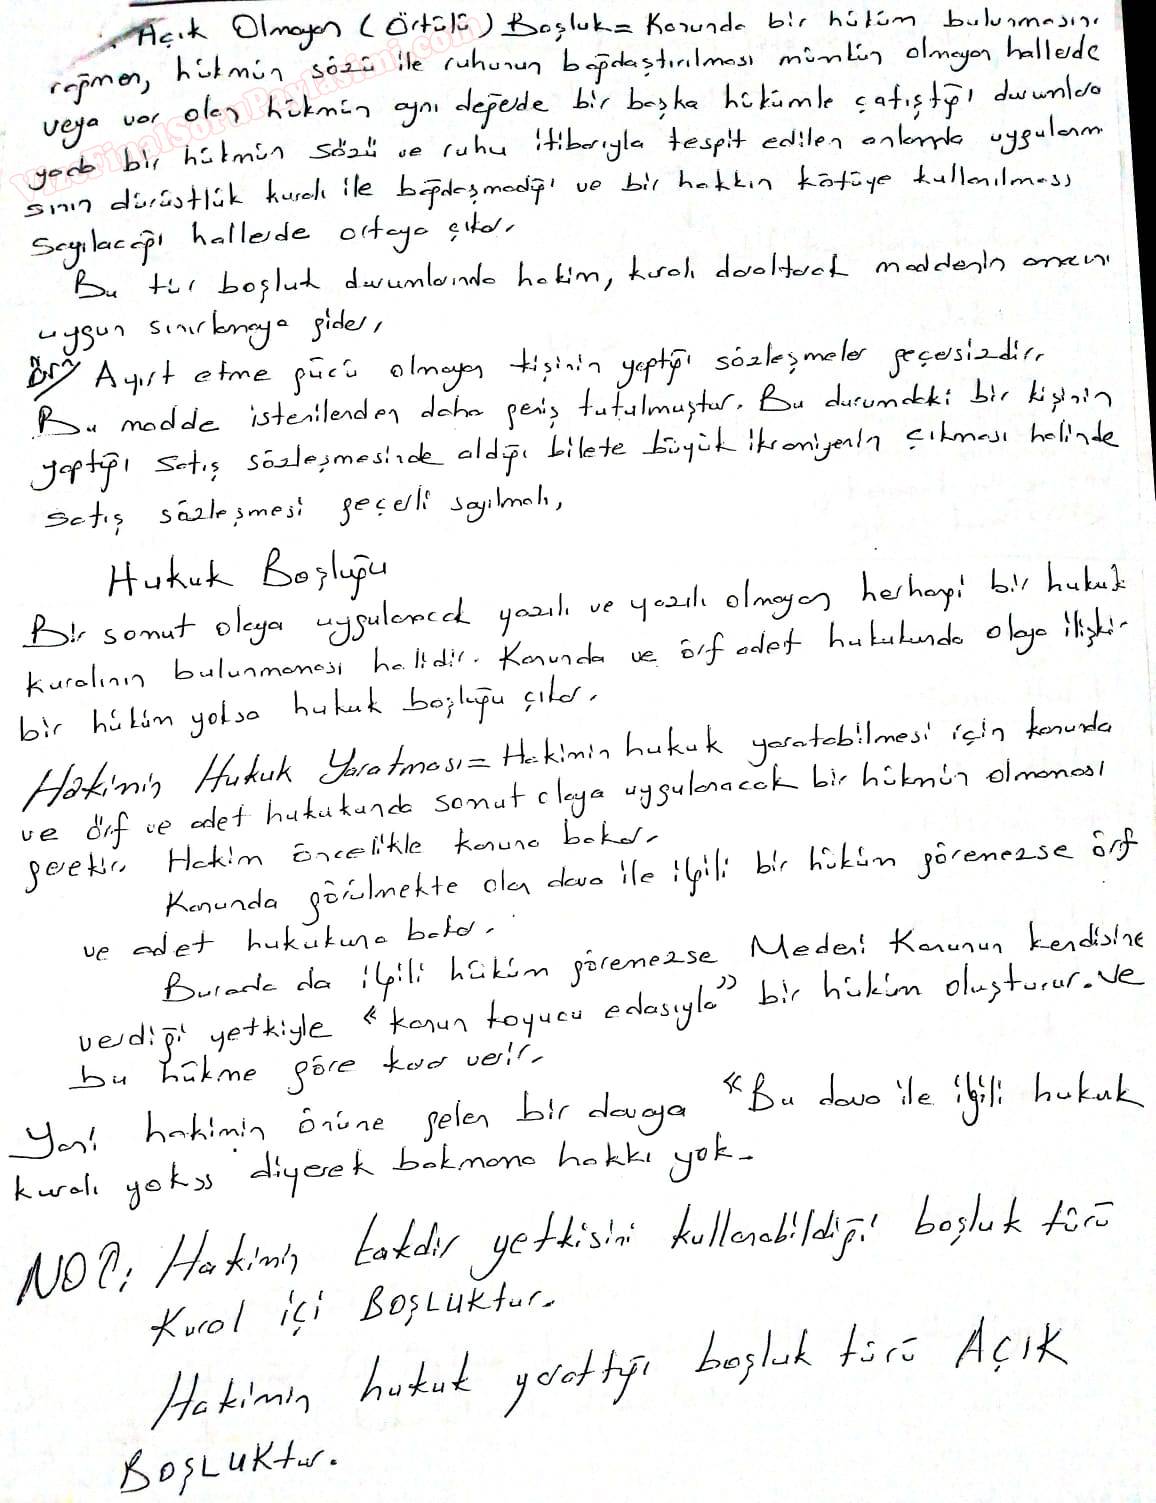 Açık Olmayan (Örtülü) Boşluk = Kanunda bir hüküm bulunmasına
rağmen, hükmün sözü ile ruhunun bağdaştırılması mümkün olmayan hallerde
veya var olan hükmün aynı değerde bir başka hükümle çatıştığı durumlarda
yada bir hükmün sözü ve ruhu itibarıyla tespit edilen anlamda uygulanma
sının dürüstlük kuralı ile bağdaşmadığı ve bir hakkın kötüye kullanılması
Sayılacağı hallerde ortaya çıkar.
Bu tür boşluk durumlarında hakim, kuralı daraltarak maddenin amacına
uygun sınırlamaya gider.
Örn/ Ayırt etme gücü olmayan kişinin yaptığı sözleşmeler geçersizdir.
Bu madde istenilenden daha geniş tutulmuştur. Bu durumdaki bir kişinin
yaptığı satış sözleşmesinde aldığı bilete büyük ikramiyenin çıkması halinde
satış sözleşmesi geçerli sayılmalı,
Hukuk Boşluğu
Bir somut olaya uygulanacak yazılı ve yazılı olmayan herhangi bir hukuk
kuralının bulunmaması halidir. Kanunda ve örf adet hukukunda olaya ilişkin
bir hüküm yoksa hukuk boşluğu çıkar.
Hakimin Hukuk Yaratması = Hakimin hukuk yaratabilmesi için kanunda
ve örf ve adet hukukunda somut olaya uygulanacak bir hükmün olmaması
gerekir. Hakim öncelikle kanuna bakar.
Kanunda görülmekte olan dava ile ilgili bir hüküm göremezse örf
ve adet hukukuna bakar.
Burada da ilgili hüküm göremezse Medeni Kanunun kendisine
verdiği yetkiyle "kanun koyucu edasıyla" bir hüküm oluşturur. Ve
bu hükme göre karar verir.
Yani hakimin önüne gelen bir davaya "Bu dava ile ilgili hukuk
kuralı yok" diyerek bakmama hakkı yok.
NOT: Hakimin takdir yetkisini kullanabildiği boşluk türü
Kural içi BOŞLUKtur.
Hakimin hukuk yarattığı boşluk türü AÇIK
BOŞLUKtur.
VizeFinalSoruPaylasimi.com